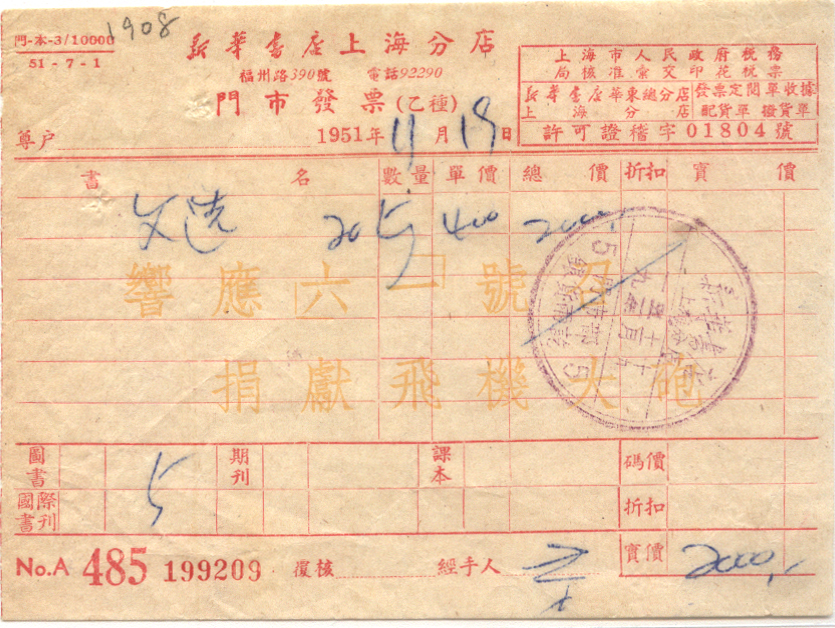 1908
門-本-3/10000
51-7-1
新華書店上海分店
福州路390號 電話92290
門市發票(乙種)
上海市人民政府稅務
局核准彙交印花稅票
新華書店華東總分店 發票定閱單收據
上海分店 配貨單 撥貨單
許可證稽字01804號
尊戶 1951年11月19日
書名 數量 單價 總價 折扣 實價
文选 5 400 2000
響應六一號召
捐獻飛機大砲
圖書 5 期刊 課本 碼價
國際書刊 折扣
No.A 485 199209 覆核 經手人 實價 2000